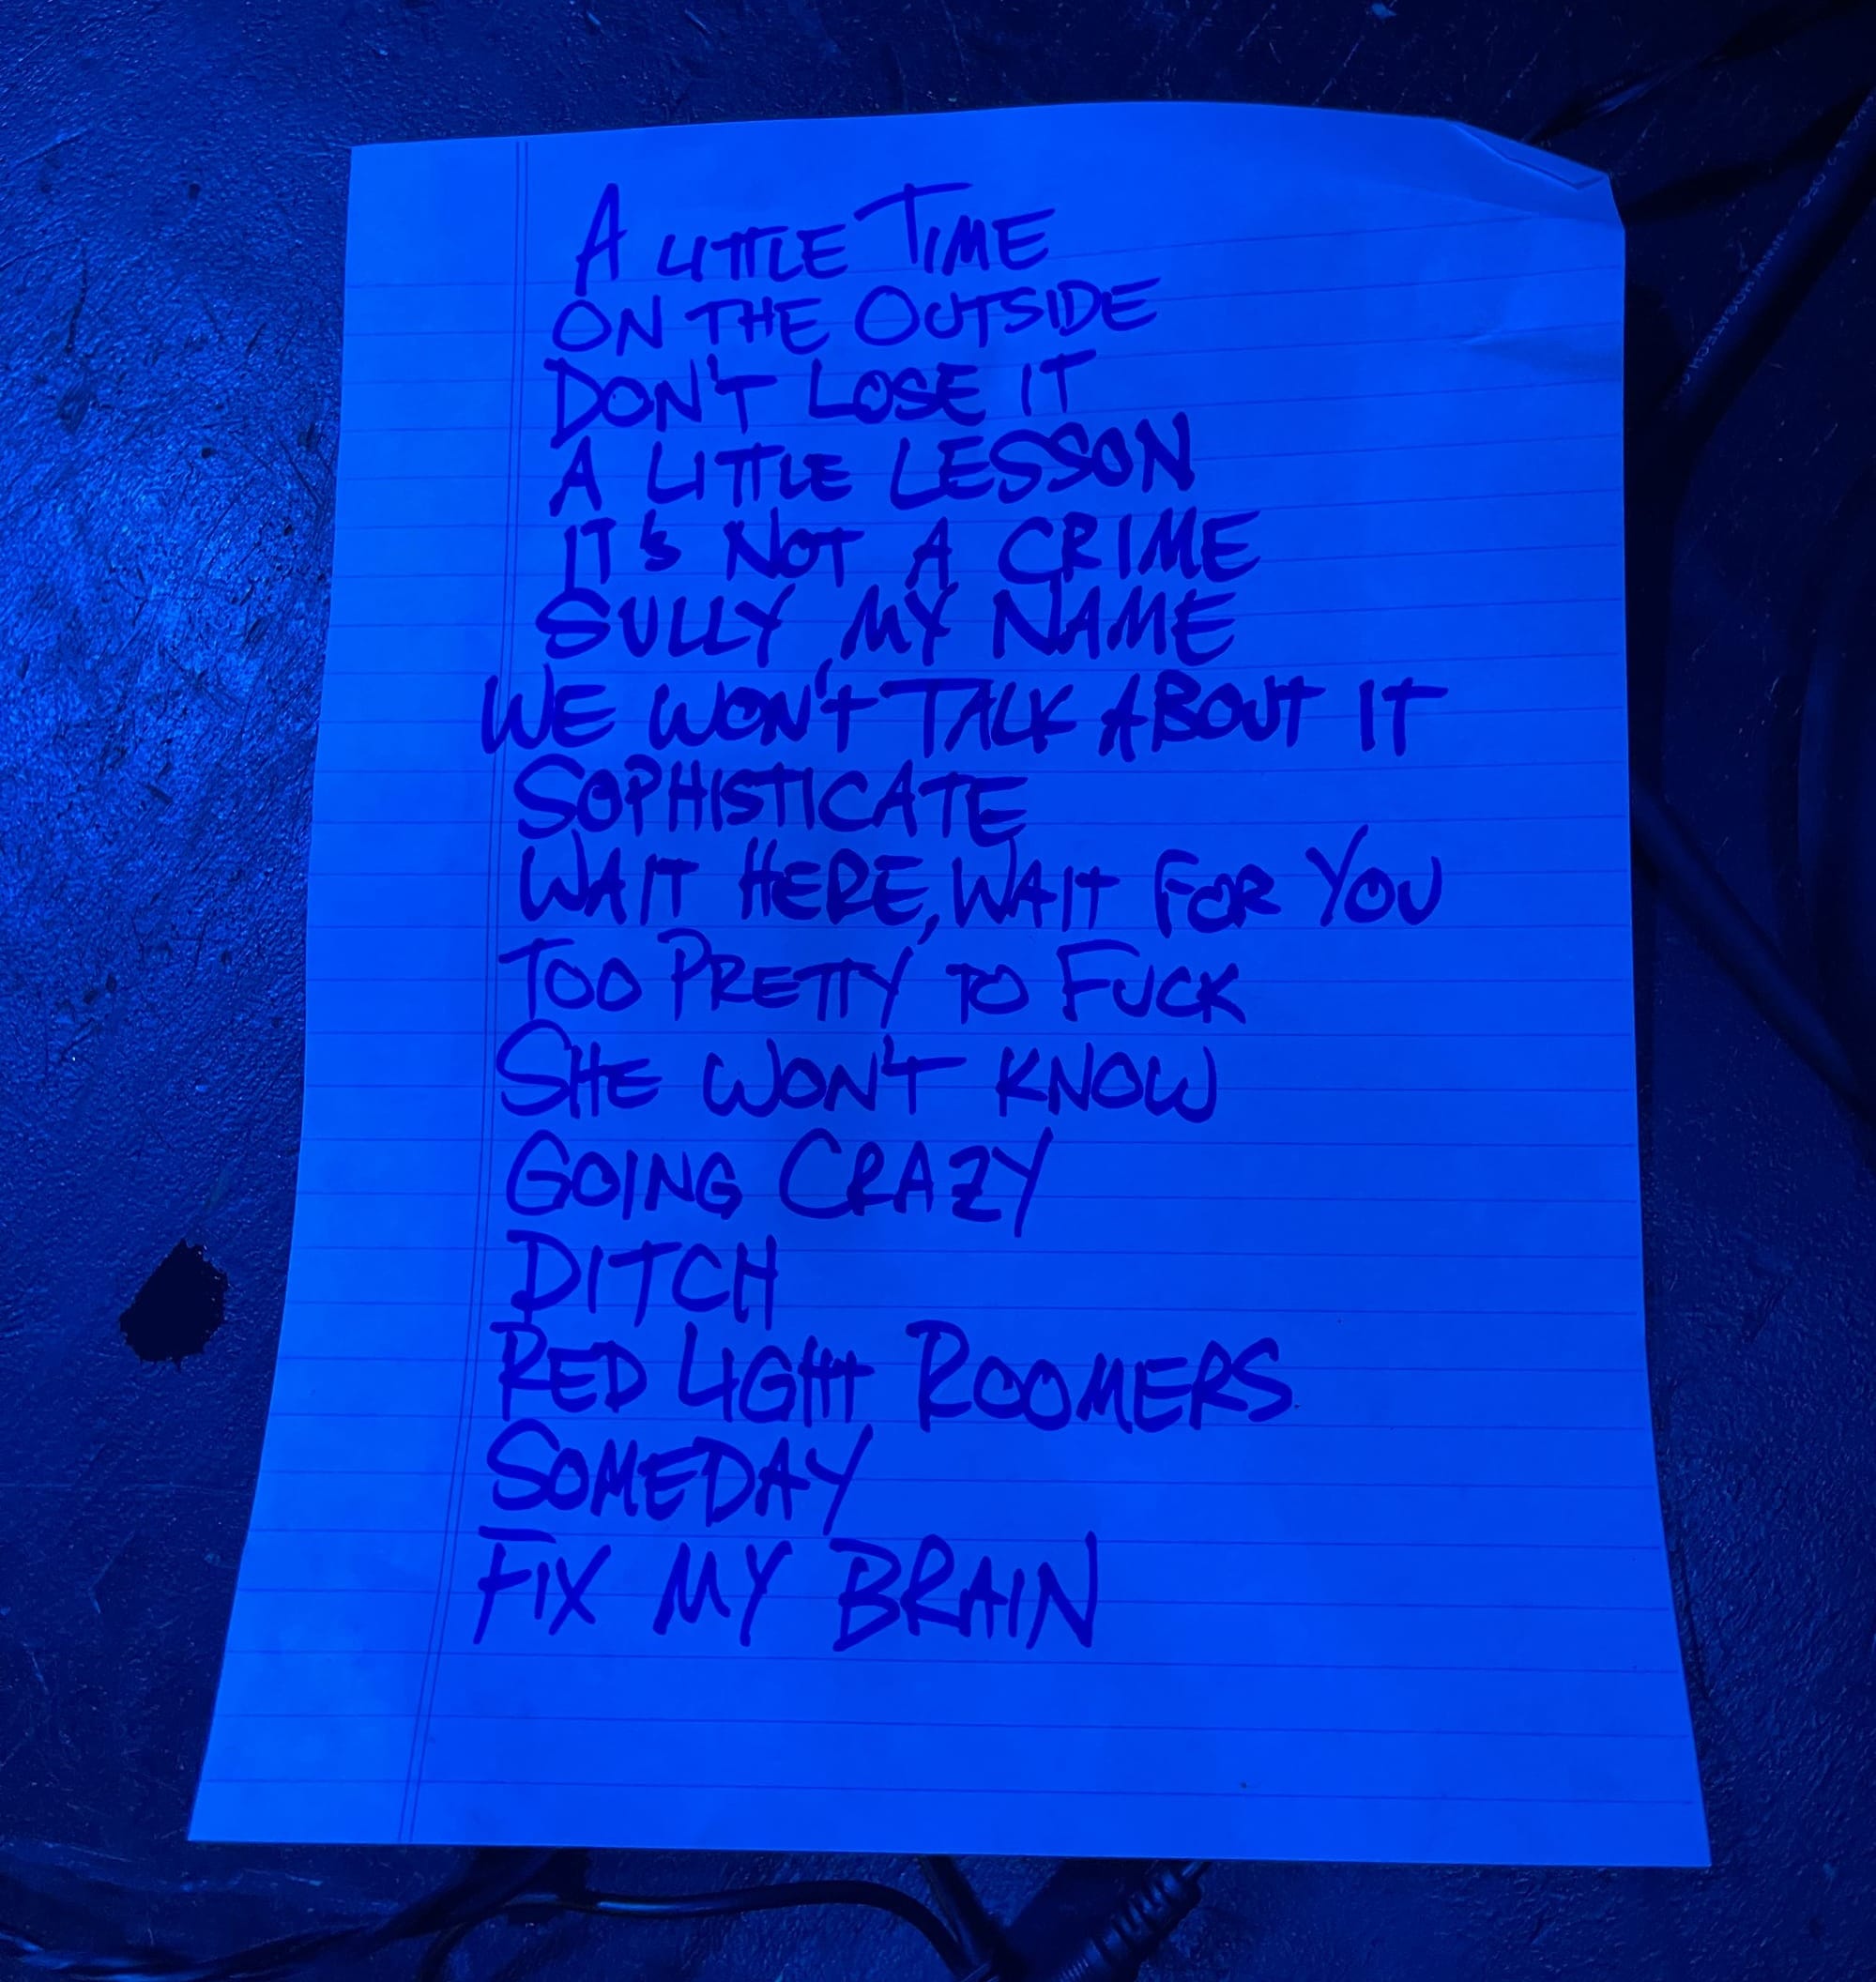 A LITTLE TIME
ON THE OUTSIDE
DON'T LOSE IT
A LITTLE LESSON
IT'S NOT A CRIME
SULLY MY NAME
WE WON'T TALK ABOUT IT
SOPHISTICATE
WAIT HERE, WAIT FOR YOU
TOO PRETTY TO FUCK
SHE WON'T KNOW
GOING CRAZY
DITCH
RED LIGHT ROOMERS
SOMEDAY
FIX MY BRAIN